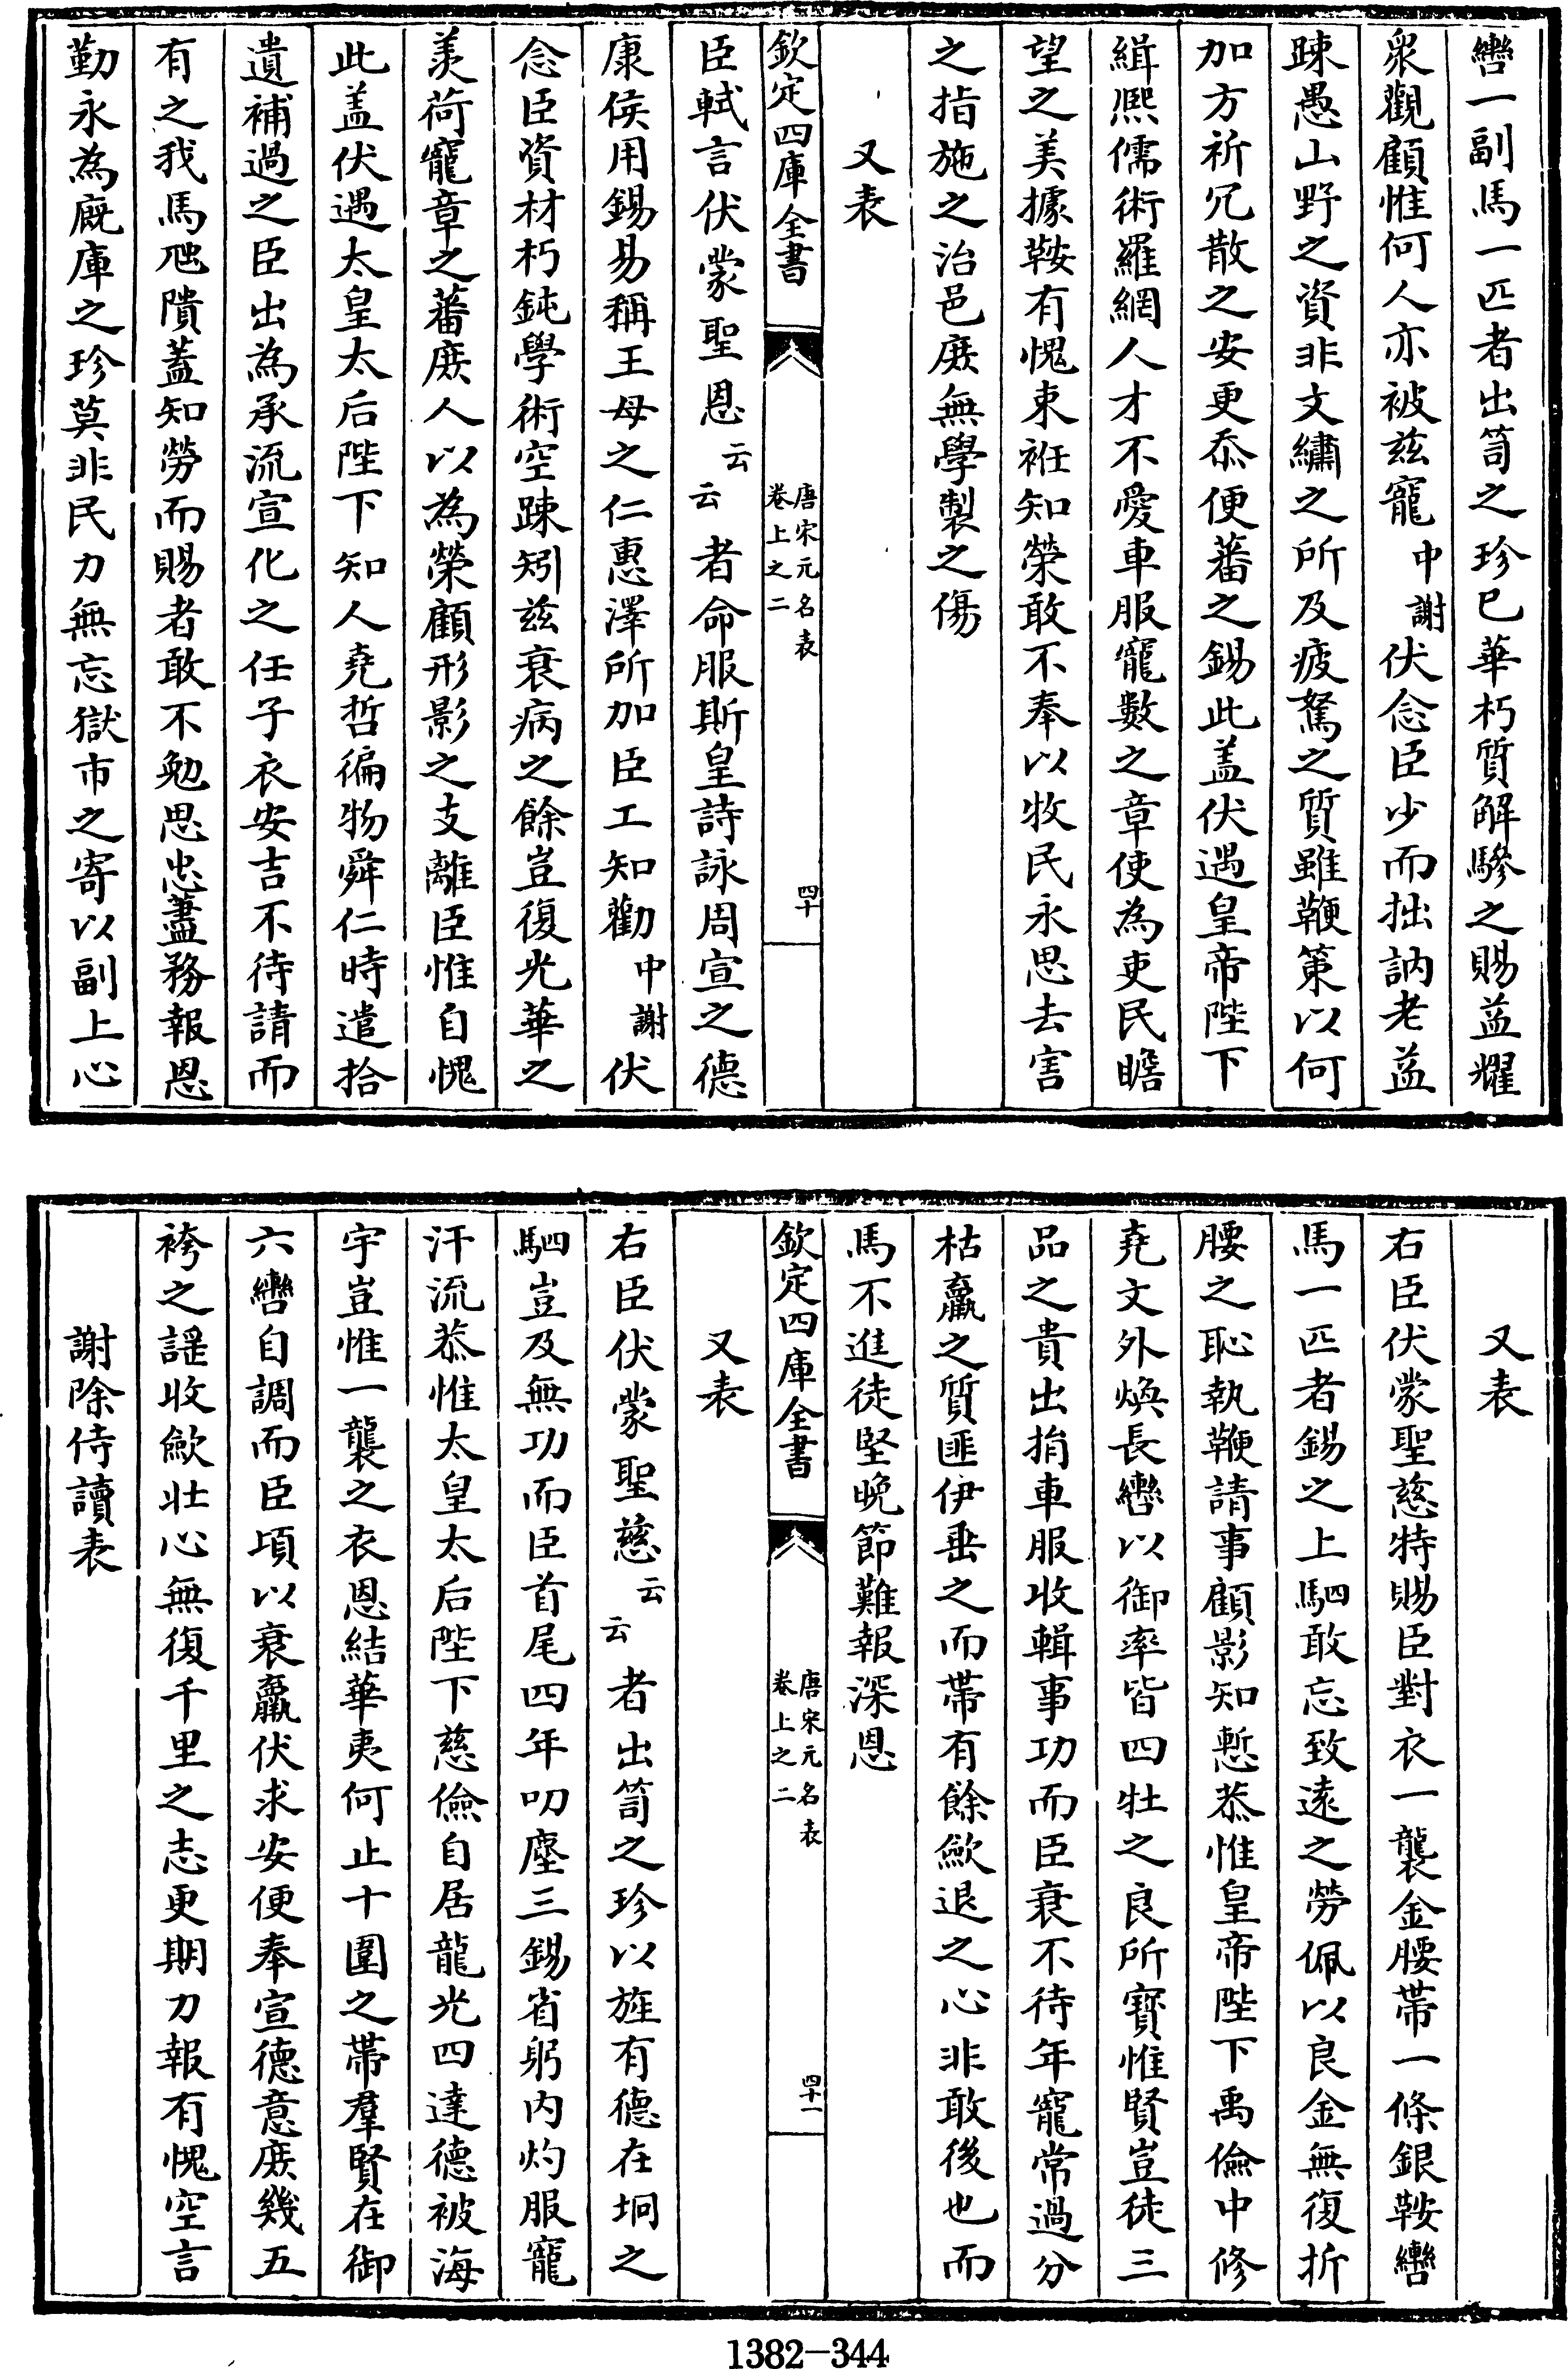 轡一副馬一匹者出笥之珍已華朽質解驂之賜益耀
衆觀顧惟何人亦被兹寵中謝伏念臣少而拙訥老益
踈愚山野之資非文繡之所及疲駑之質雖鞭策以何
加方祈冗散之安更忝便蕃之錫此盖伏遇皇帝陛下
緝熈儒術羅網人才不愛車服寵數之章使為吏民瞻
望之美據鞍有愧束袵知榮敢不奉以牧民永思去害
之指施之治邑庶無學製之傷
又表
欽定四庫全書
唐宋元名表
卷上之二
四十
臣軾言伏蒙聖恩云云者命服斯皇詩詠周宣之德
康侯用錫易稱王母之仁惠澤所加臣工知勸中謝伏
念臣資材朽鈍學術空踈矧兹衰病之餘豈復光華之
羡荷寵章之蕃庶人以為榮顧形影之支離臣惟自愧
此盖伏遇太皇太后陛下知人堯哲徧物舜仁時遣拾
遺補過之臣出為承流宣化之任子衣安吉不待請而
有之我馬虺隤蓋知勞而賜者敢不勉思忠藎務報恩
勤永為廐庫之珍莫非民力無忘獄市之寄以副上心
又表
右臣伏蒙聖慈特賜臣對衣一襲金腰帶一條銀鞍轡
馬一匹者錫之上駟敢忘致逺之勞佩以良金無復折
腰之恥執鞭請事顧影知慙恭惟皇帝陛下禹儉中修
堯文外煥長轡以御率皆四牡之良所寳惟賢豈徒三
品之貴出捐車服收輯事功而臣衰不待年寵常過分
枯羸之質匪伊垂之而帶有餘歛退之心非敢後也而
馬不進徒堅晚節難報深恩
欽定四庫全書
唐宋元名表
卷上之二
四十一
又表
右臣伏蒙聖慈云云者出笥之珍以旌有德在坰之
駟豈及無功而臣首尾四年叨塵三錫省躬内灼服寵
汗流恭惟太皇太后陛下慈儉自居龍光四達德被海
宇豈惟一襲之衣恩結華夷何止十圍之帶羣賢在御
六轡自調而臣頃以衰羸伏求安便奉宣德意庶幾五
袴之謡收歛壯心無復千里之志更期力報有愧空言
謝除侍讀表
1382-344